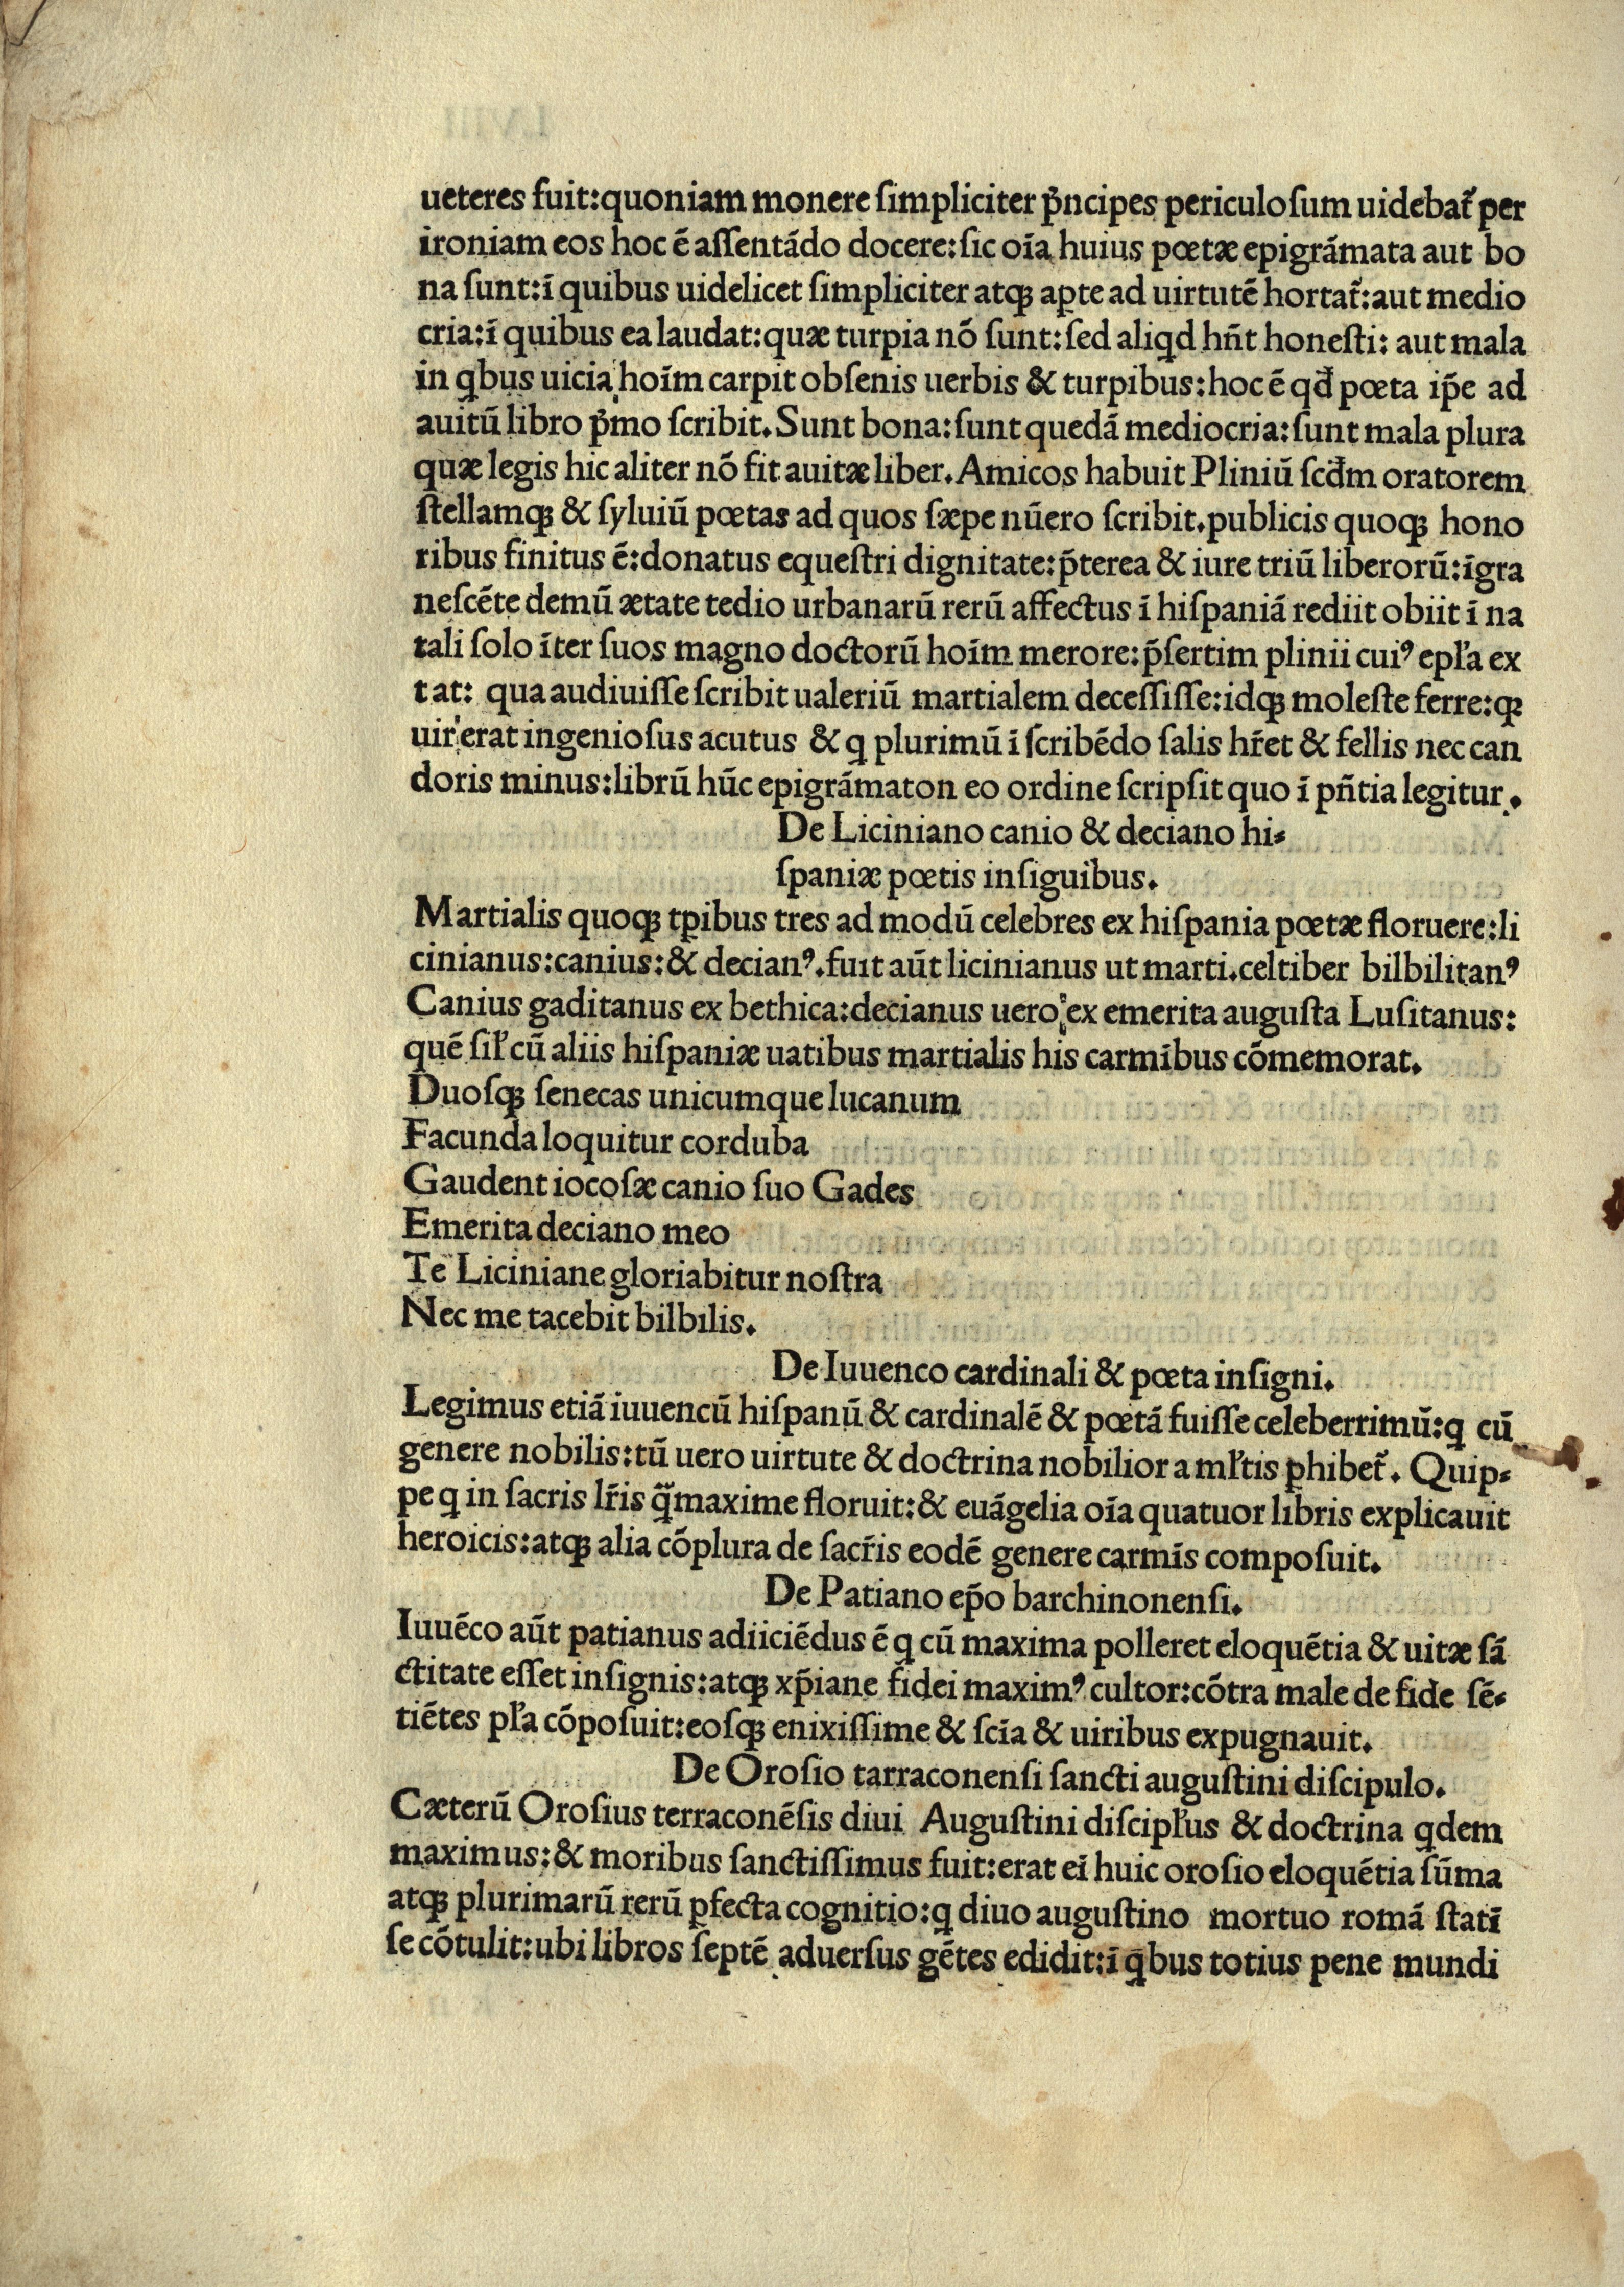 ueteres fuit:quoniam monere ſimpliciter p̃ncipes periculoſum uidebat᷑ per
ironiam eos hoc ẽ aſſentãdo docere:ſic oĩa huius poetæ epigrãmata aut bo
na ſunt:ĩ quibus uidelicet ſimpliciter atqꝫ aꝑte ad uirtutẽ hortat᷑:aut medio
cria:ĩ quibus ea laudat:quæ turpia nõ ſunt:ſed aliqd hñt honeſti: aut mala
in qbus uicia hoĩm carpit obſenis uerbis & turpibus:hoc ẽ qđ poeta ip̃e ad
auitũ libro p̃mo ſcribit.Sunt bona:ſunt quedã mediocria:ſunt mala plura
quæ legis hic aliter nõ fit auitæ liber.Amicos habuit Pliniũ ſcđm oratorem
ſtellamqꝫ & ſyluiũ poetas ad quos ſæpe nũero ſcribit.publicis quoqꝫ hono
ribus finitus ẽ:donatus equeſtri dignitate:p̃terea & iure triũ liberorũ:ĩgra
neſcẽte demũ ætate tedio urbanarũ rerũ affectus ĩ hiſpaniã rediit obiit ĩ na
tali ſolo ĩter ſuos magno doctorũ hoĩm merore:p̃ſertim plinii cuiꝰ epl̃a ex
tat: qua audiuiſſe ſcribit ualeriũ martialem deceſſiſſe:idqꝫ moleſte ferre:qꝫ
uir erat ingenioſus acutus & q plurimũ ĩ ſcribẽdo ſalis hr̃et & fellis nec can
doris minus:librũ hũc epigrãmaton eo ordine ſcripſit quo ĩ pñtia legitur.
De Liciniano canio & deciano hi⸗
ſpaniæ poetis inſiguibus.
Martialis quoqꝫ tꝑibus tres ad modũ celebres ex hiſpania poetæ floruere:li
cinianus:canius:& decianꝰ.fuit aũt licinianus ut marti.celtiber bilbilitanꝰ
Canius gaditanus ex bethica:decianus uero ex emerita auguſta Luſitanus:
quẽ ſil̃ cũ aliis hiſpaniæ uatibus martialis his carmĩbus cõmemorat.
Duoſqꝫ ſenecas unicumque lucanum
Facunda loquitur corduba
Gaudent iocoſæ canio ſuo Gades
Emerita deciano meo
Te Liciniane gloriabitur noſtra
Nec me tacebit bilbilis.
De Iuuenco cardinali & poeta inſigni.
Legimus etiã iuuencũ hiſpanũ & cardinalẽ & poetã fuiſſe celeberrimũ:q cũ
genere nobilis:tũ uero uirtute & doctrina nobilior a ml̃tis ꝑhibet᷑. Quip⸗
pe q in ſacris lr̃is q̃maxime floruit:& euãgelia oĩa quatuor libris explicauit
heroicis:atqꝫ alia cõplura de ſacr̃is eodẽ genere carmĩs compoſuit.
De Patiano ep̃o barchinonenſi.
Iuuẽco aũt patianus adiiciẽdus ẽ q cũ maxima polleret eloquẽtia & uitæ ſã
ctitate eſſet inſignis:atqꝫ xp̃iane fidei maximꝰ cultor:cõtra male de fide ſẽ⸗
tiẽtes pl̃a cõpoſuit:eoſqꝫ enixiſſime & ſcĩa & uiribus expugnauit.
De Oroſio tarraconenſi ſancti auguſtini diſcipulo.
Cæterũ Oroſius terraconẽſis diui Auguſtini diſcipl̃us & doctrina qdem
maximus:& moribus ſanctiſſimus fuit:erat eĩ huic oroſio eloquẽtia ſũma
atqꝫ plurimarũ rerũ ꝑfecta cognitio:q diuo auguſtino mortuo romã ſtatĩ
ſe cõtulit:ubi libros ſeptẽ aduerſus gẽtes edidit:ĩ qbus totius pene mundi